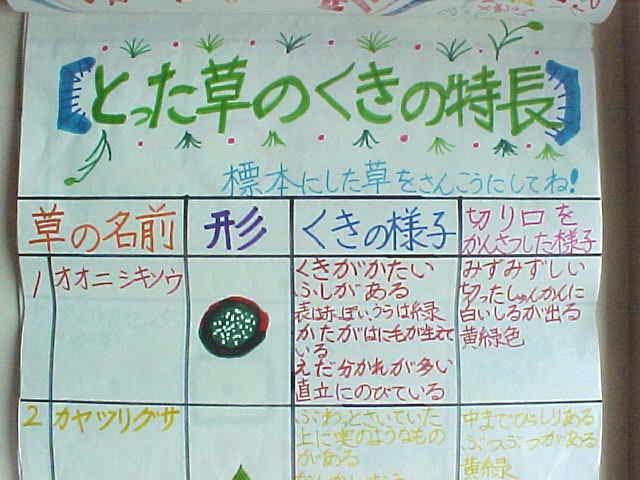 とった草のくきの特長
標本にした草をさんこうにしてね!
草の名前
形
くきの様子
切り口を
かんさつした様子
1
オオニシキソウ
くきがかたい
ふしがある
表は赤っぽいうらは緑
かたがはにも が生えて
いる
えだ分かれが多い
直立にのびている
みずみずしい
切ったしゅんかんに
白いしるが出る
黄緑色
2
カヤツリグサ
ふわっとさいていた
上に実のようなもの
がある
中までびっしりある
ぶつぶつがある
黄緑